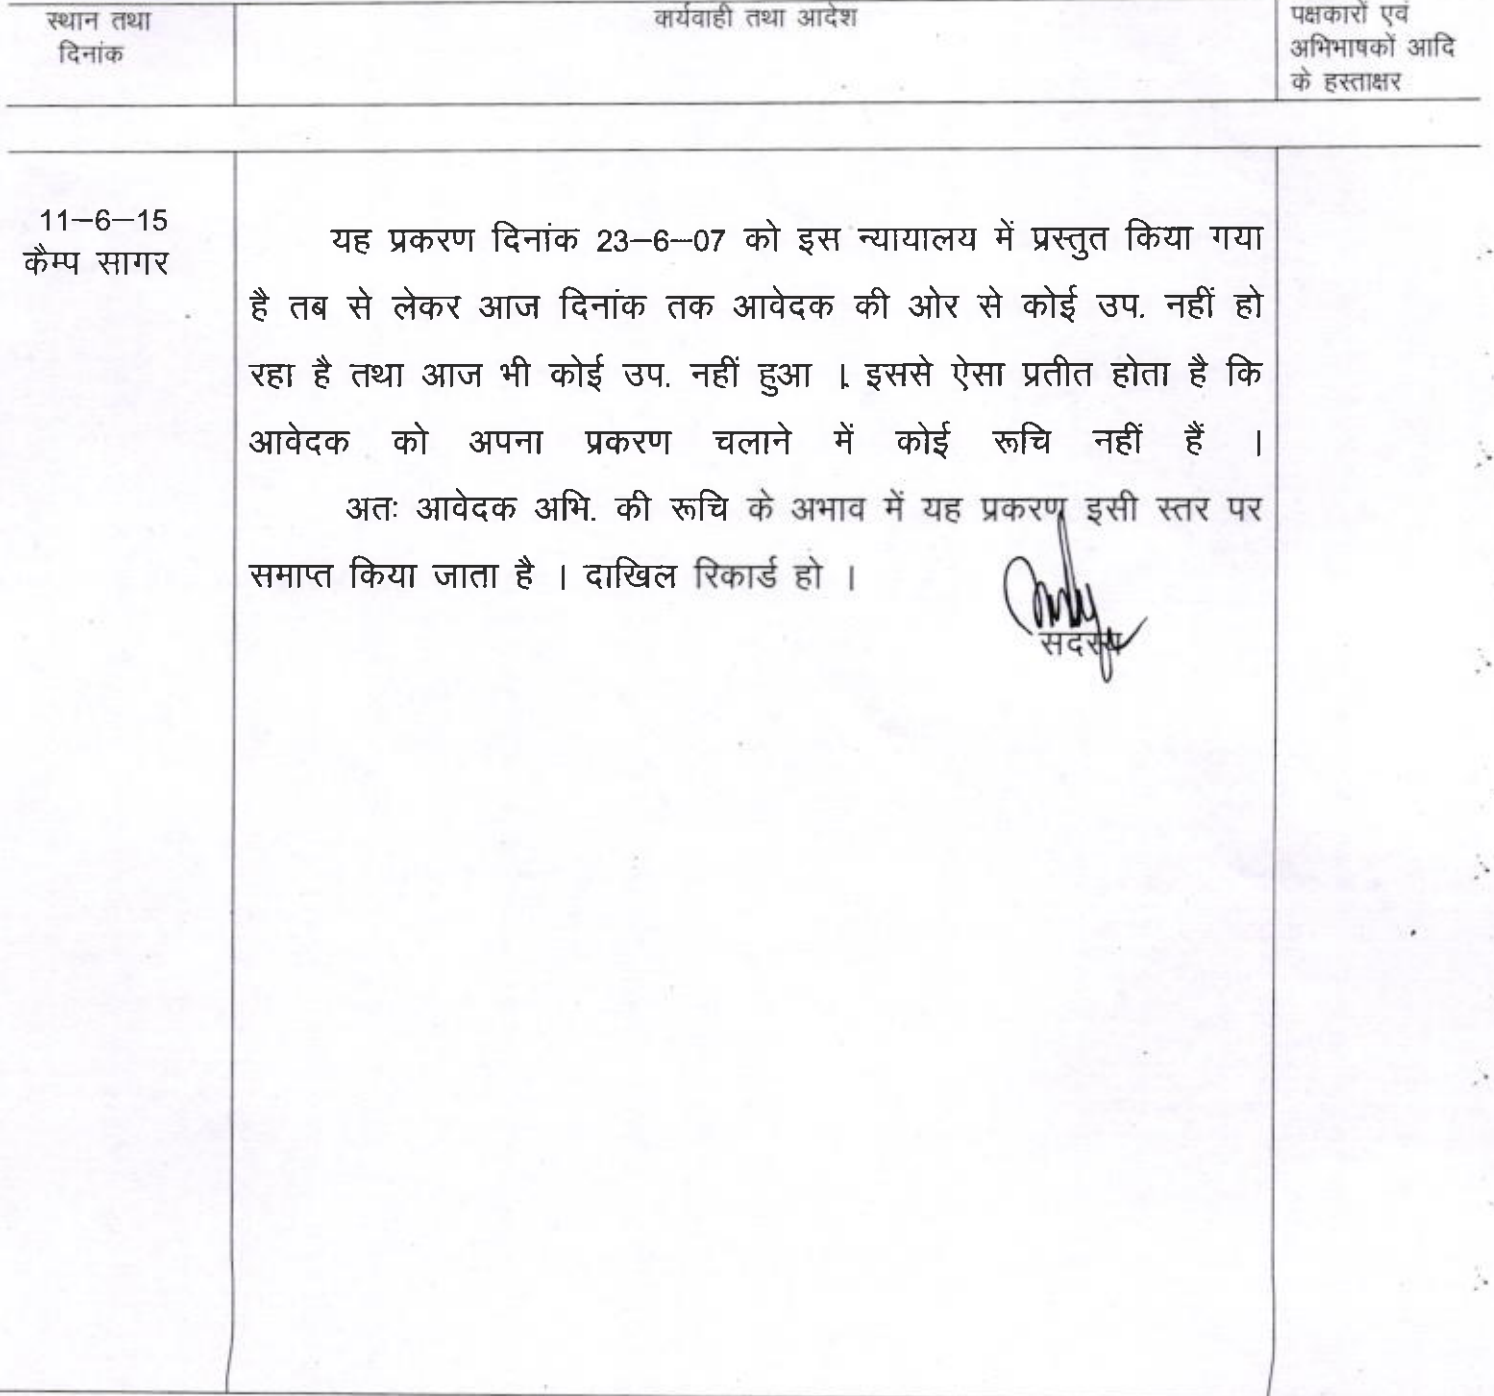 स्थान तथा
दिनांक
कार्यवाही तथा आदेश
पक्षकारों एवं
अभिभाषकों आदि
के हस्ताक्षर
11–6–15
कैम्प सागर
यह प्रकरण दिनांक 23–6–07 को इस न्यायालय में प्रस्तुत किया गया
है तब से लेकर आज दिनांक तक आवेदक की ओर से कोई उप. नहीं हो
रहा है तथा आज भी कोई उप. नहीं हुआ । इससे ऐसा प्रतीत होता है कि
आवेदक को अपना प्रकरण चलाने में कोई रूचि नहीं हैं ।
अतः आवेदक अभि. की रूचि के अभाव में यह प्रकरण इसी स्तर पर
समाप्त किया जाता है । दाखिल रिकार्ड हो ।
सदस्य